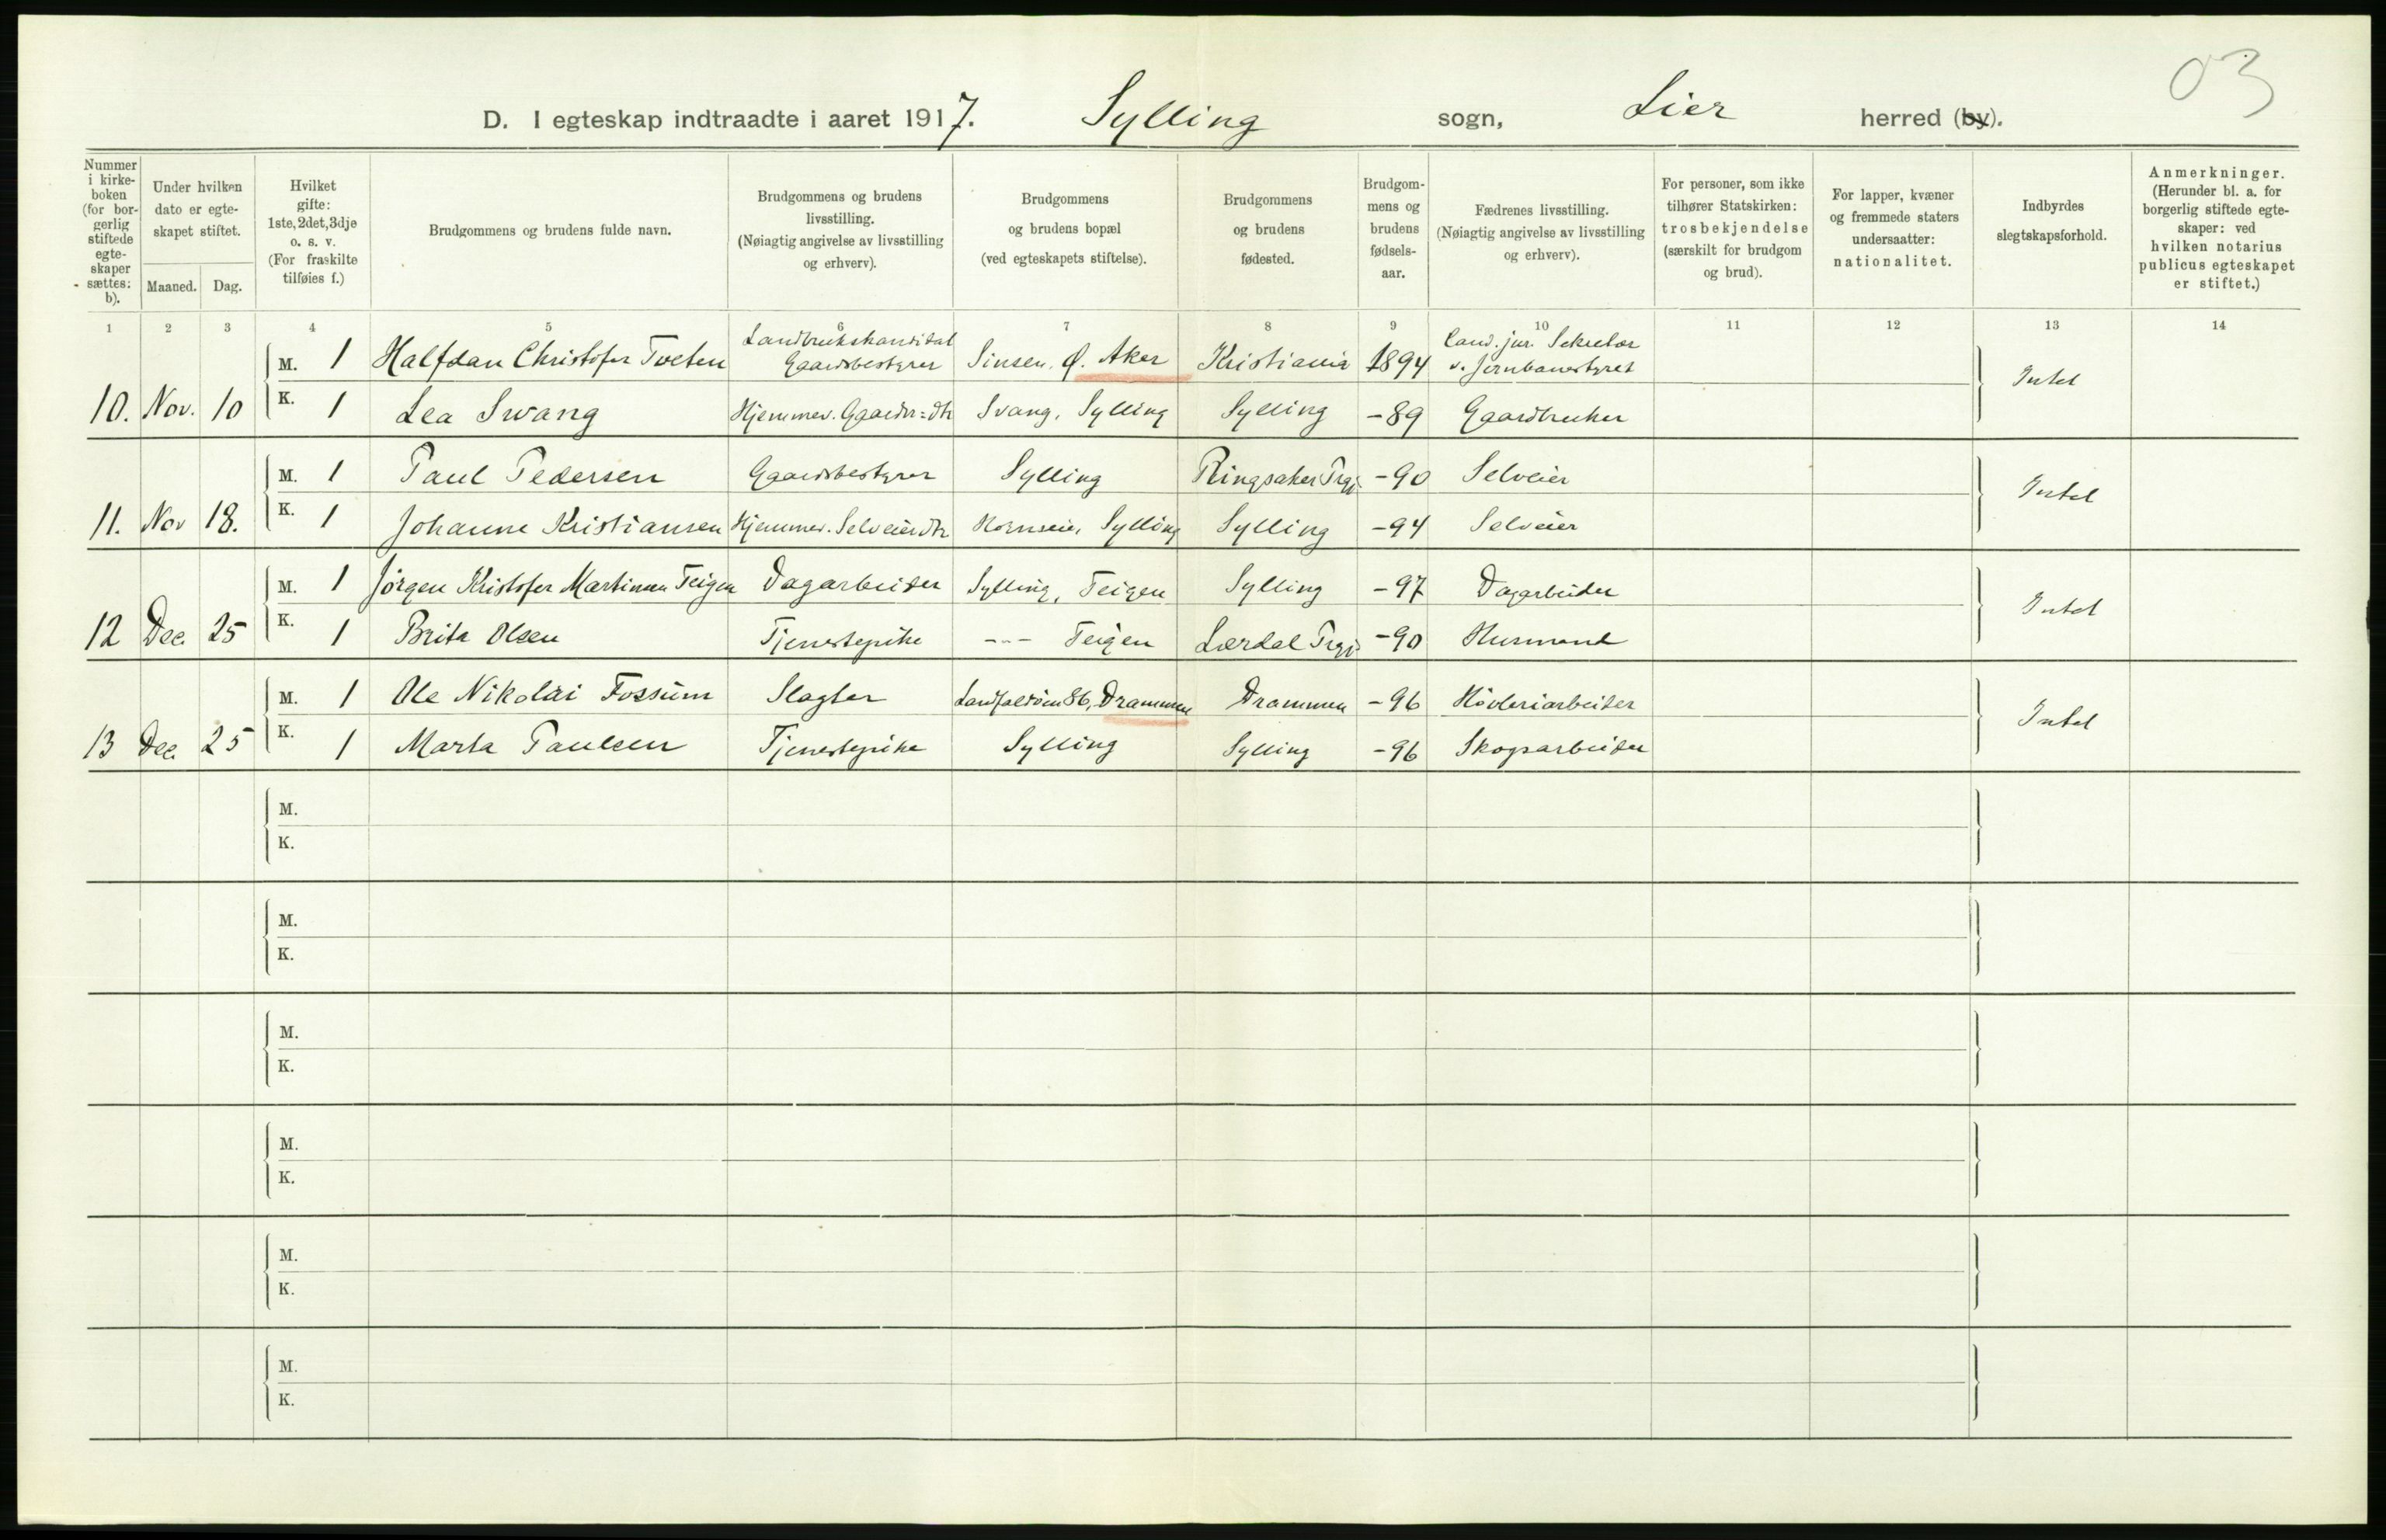 03
D. I egteskap indtraadte i aaret 1917. Sylling sogn, Lier herred (by).
Nummer i kirkeboken (for borgerlig stiftede egteskaper sættes: b).
Under hvilken dato er egteskapet stiftet.
Maaned. Dag.
Hvilket gifte: 1ste, 2det, 3dje o. s. v. (For fraskilte tilføies f.)
Brudgommens og brudens fulde navn.
Brudgommens og brudens livsstilling. (Nøiagtig angivelse av livsstilling og erhverv).
Brudgommens og brudens bopæl (ved egteskapets stiftelse).
Brudgommens og brudens fødested.
Brudgommens og brudens fødselsaar.
Fædrenes livsstilling. (Nøiagtig angivelse av livsstilling og erhverv).
For personer, som ikke tilhører Statskirken: trosbekjendelse (særskilt for brudgom og brud).
For lapper, kvæner og fremmede staters undersaatter: nationalitet.
Indbyrdes slegtskapsforhold.
Anmerkninger. (Herunder bl. a. for borgerlig stiftede egteskaper: ved hvilken notarius publicus egteskapet er stiftet.)
1 2 3 4 5 6 7 8 9 10 11 12 13 14
M. 1 Halfdan Christofer Tveten Landbrukskandidat Gaardsbestyrer Sinsen, Ø. Aker Kristiania 1894 Cand. jur. Sekretær v. Jernbanestyret
10. Nov. 10 K. 1 Lea Svang Hjemmev. Gaardbr=dtr Svang, Sylling Sylling -89 Gaardbruker Intet
M. 1 Paul Pedersen Gaardsbestyrer Sylling Ringsaker Prgj. -90 Selveier
11. Nov 18. K. 1 Johanne Kristiansen Hjemmev. Selveierdtr Hornseie, Sylling Sylling -94 Selveier Intet
M. 1 Jörgen Kristofer Martinsen Teigen Dagarbeider Sylling, Teigen Sylling -97 Dagarbeider
12 Dec. 25 K. 1 Brita Olsen Tjenestepike --- Teigen Lærdal Prgj. -90 Husmand Intet
M. 1 Ole Nikolai Fossum Slagter Landfaldöien 86, Drammen Drammen -96 Hövleriarbeider
13 Dec. 25 K. 1 Marta Paulsen Tjenestepike Sylling Sylling -96 Skogsarbeider Intet
M.
K.
M.
K.
M.
K.
M.
K.
M.
K.
M.
K.